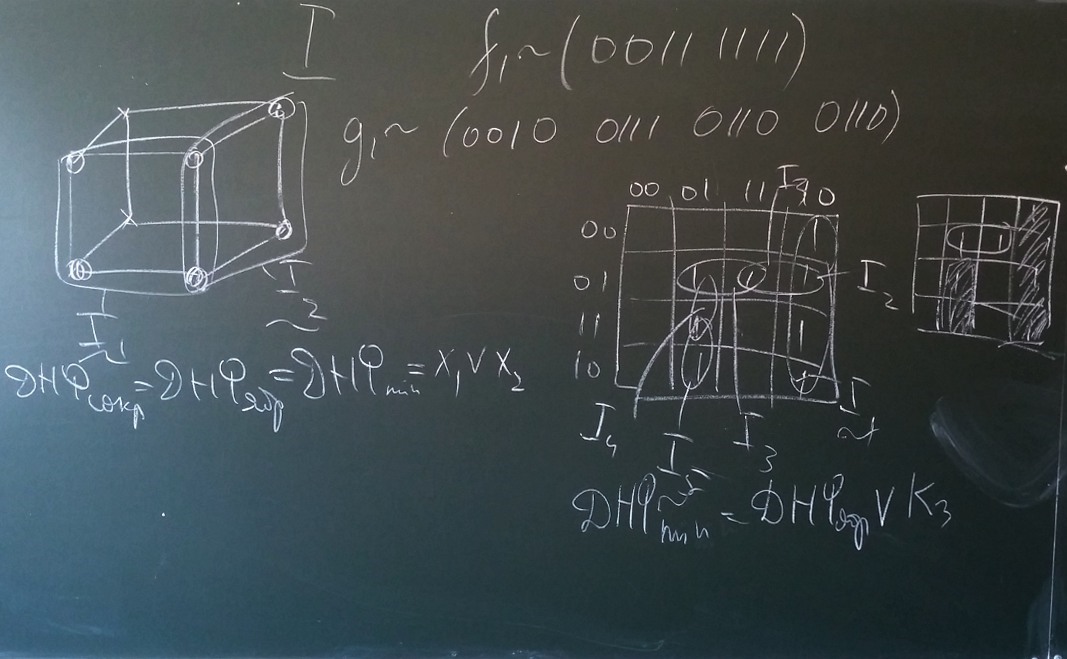 I
f₁~(0011 1111)
g₁~(0010 0111 0110 0110)
I₂
I₁
ДНФсокр = ДНФядр = ДНФmin = x₁ ∨ x₂
00 01 11 10
00 1
01 1 1 1 I₂
11 1 1
10 1 1
I₁
I₄
I₃
I₅
ДНФmin = ДНФядр ∨ K₃